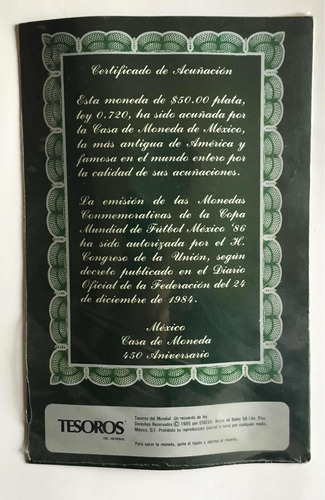 Certificado de Acuñación
Esta moneda de $50.00 plata,
ley 0.720, ha sido acuñada por
la Casa de Moneda de México,
la más antigua de América y
famosa en el mundo entero por
la calidad de sus acuñaciones.
La emisión de las Monedas
Conmemorativas de la Copa
Mundial de Fútbol México '86
ha sido autorizada por el H.
Congreso de la Unión, según
decreto publicado en el Diario
Oficial de la Federación del 24
de diciembre de 1984.
México
Casa de Moneda
450 Aniversario
TESOROS
DEL MUNDIAL
Tesoros del Mundial. Un recuerdo de ley.
Derechos Reservados © 1985 por EDIESA. 
México, D.F. Prohibida su reproducción parcial o total por cualquier medio.
Para sacar la moneda, quite el tapón y oprima el reverso.